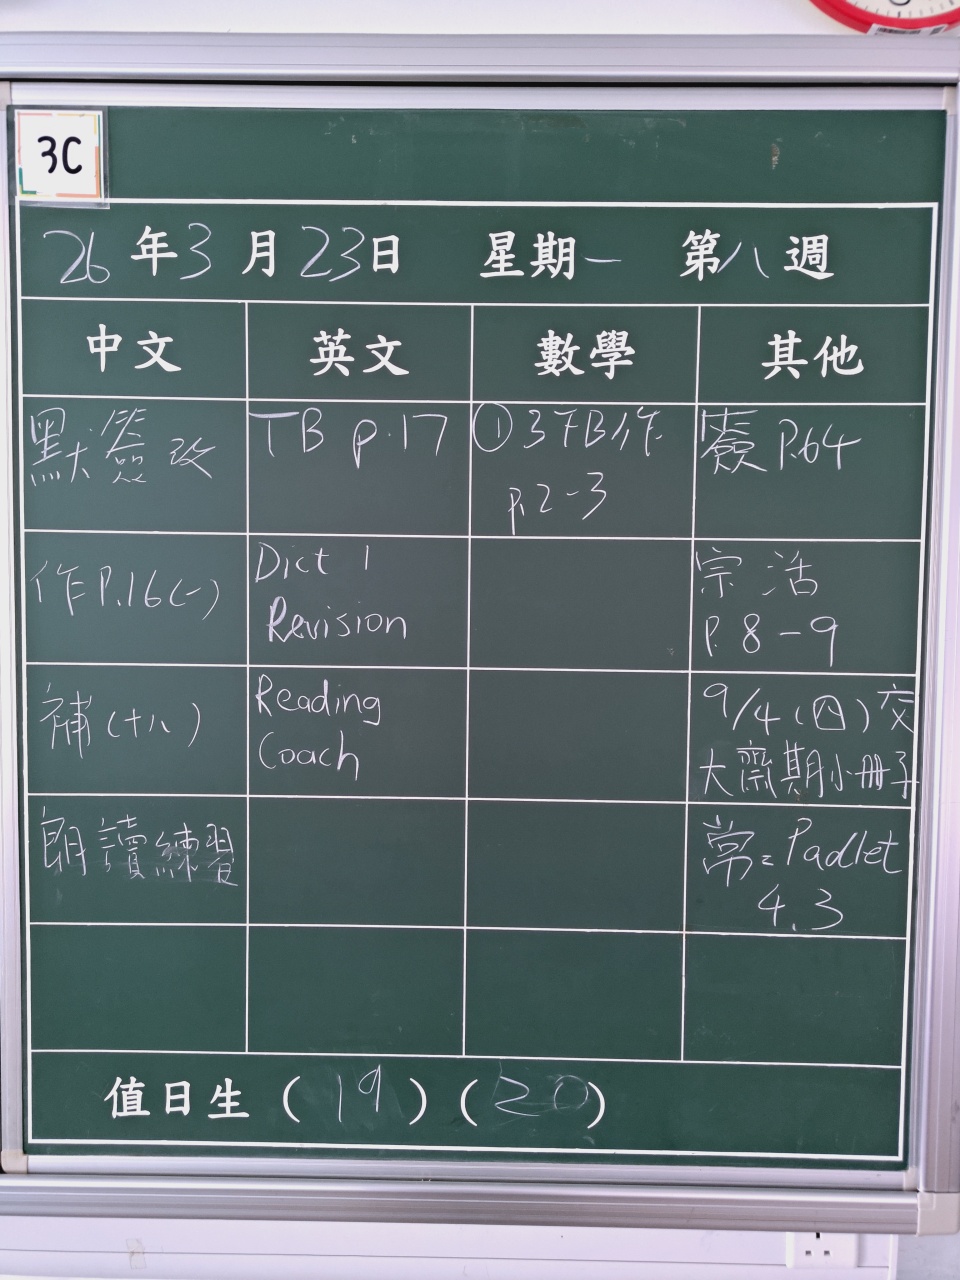 3C
26年3月23日 星期一 第八週
中文 英文 數學 其他
默簽改
TB p.17
①3下B作
p.2-3
P.64
作P.16(一)
Dict 1
Revision
宗活
P.8-9
補(十八)
Reading
Coach
9/4(四)交
大齋期小冊子
朗讀練習
常=Padlet
4.3
值日生(19)(20)